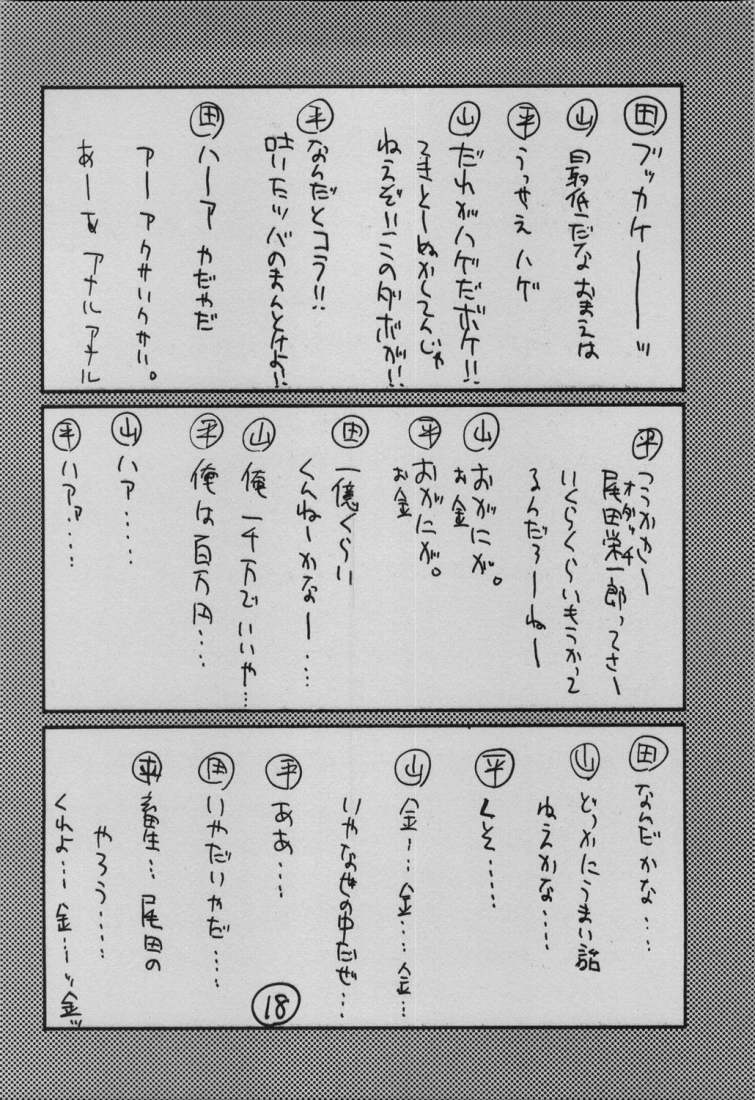 田 ブッカケーーーッ
山 最低だなおまえは
平 うっせえハゲ
山 だれがハゲだボケ!!
てきとーぬかしてんじゃ
ねえぞ!!このダボが!!
平 なんだとコラ!!
吐いたツバのまんとけよ!!
田 ハーア やだやだ
アー アクサイクサイ。
あーあ アナル アナル
平 つうかさー
尾田栄一郎ってさー
オダッチ
いくらくらいもうかって
るんだろーねー
山 おがにが。
お金
平 おがにが。
お金
田 一億くらい
くんねーかなー‥‥
山 俺 一千万でいいや…
平 俺は百万円‥‥
山 ハァ‥‥‥
平 ハァァ‥‥
田 なんだかな‥‥
山 どっかにうまい話
ねえかな‥‥
平 くそ‥‥‥
山 金…金…金…
いやなぜの中だぜ…
平 ああ‥‥
田 いやだいやだ‥‥
平 畜生… 尾田の
やろう‥‥‥
くれよ… 金…ッ金ッ
18